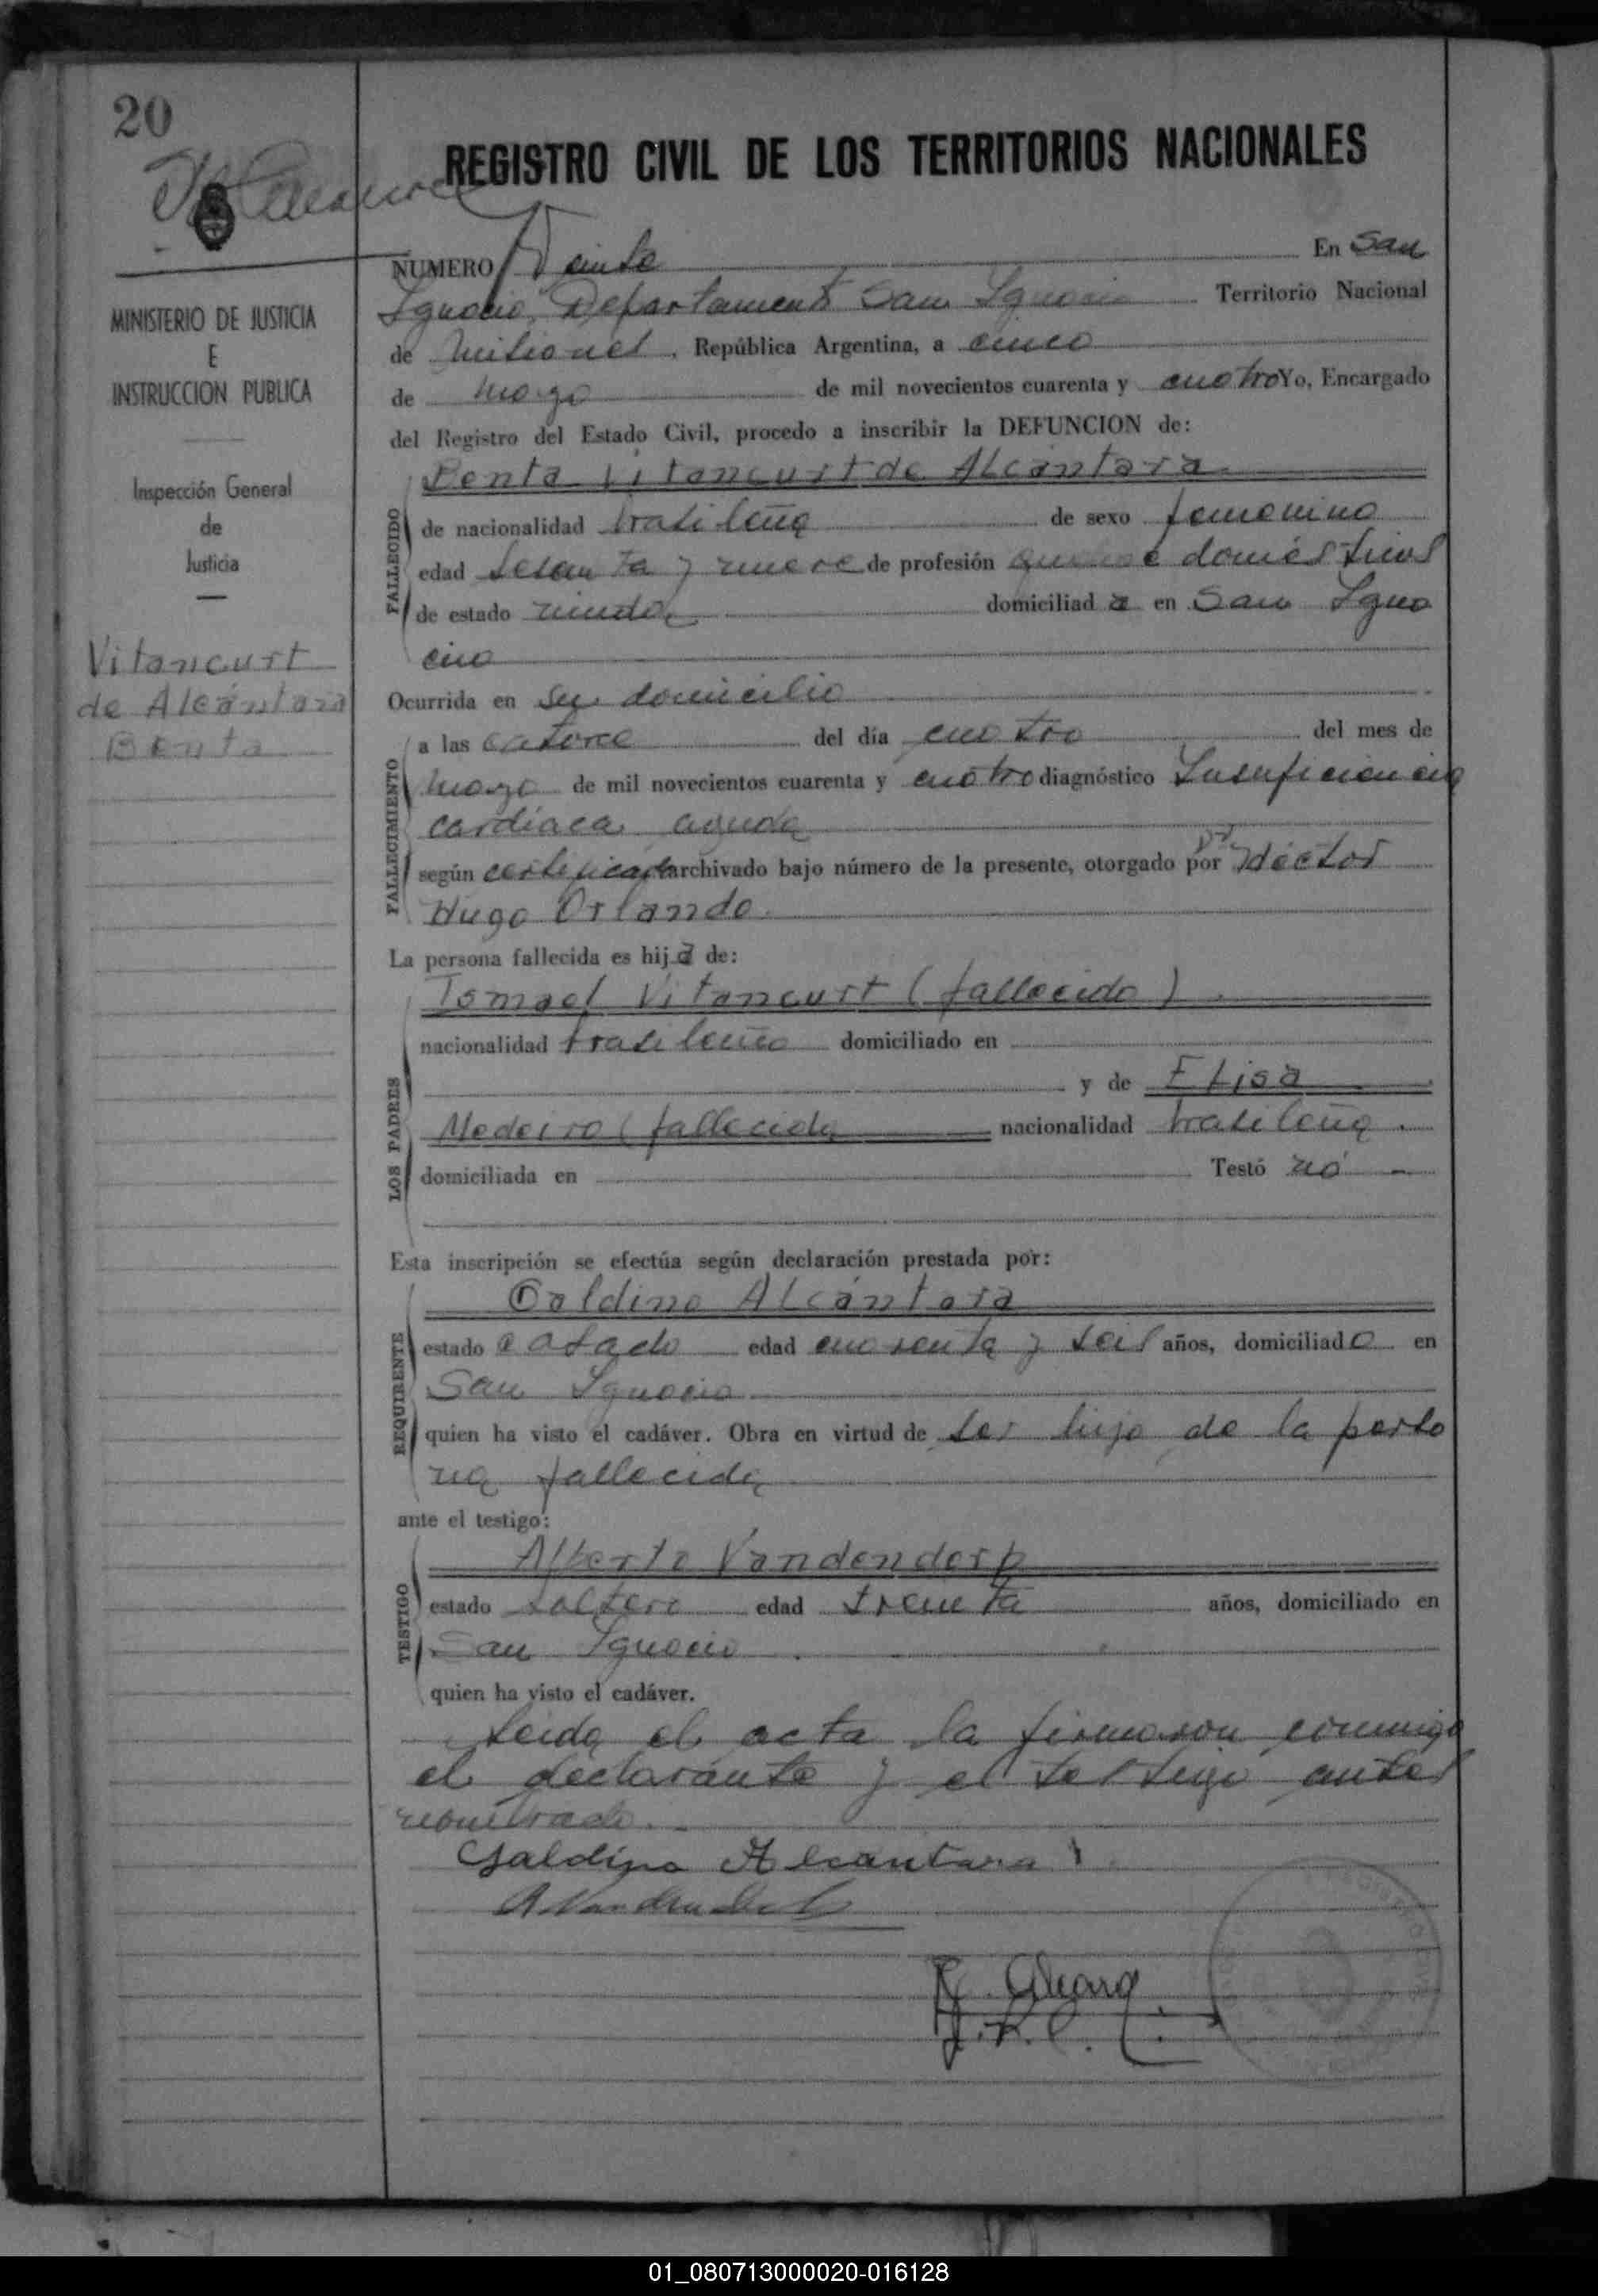 20
REGISTRO CIVIL DE LOS TERRITORIOS NACIONALES
NUMERO Veinte En San
Ignacio, Departamento San Ignacio Territorio Nacional
de Misiones, República Argentina, a cinco
de marzo de mil novecientos cuarenta y cuatro Yo, Encargado
del Registro del Estado Civil, procedo a inscribir la DEFUNCION de:
Benta Vitancurt de Alcántara
FALLECIDO
de nacionalidad brasileña de sexo femenino
edad sesenta y nueve de profesión quehace domésticos
de estado viuda domiciliad a en San Igna
cio
Ocurrida en su domicilio
FALLECIMIENTO
a las catorce del día cuatro del mes de
marzo de mil novecientos cuarenta y cuatro diagnóstico Insuficiencia
cardíaca aguda
según certificado archivado bajo número de la presente, otorgado por Dr Héctor
Hugo Orlando.
La persona fallecida es hija de:
LOS PADRES
Ismael Vitancurt (fallecido)
nacionalidad brasileño domiciliado en
y de Elisa
Medeiro (fallecida nacionalidad brasileña.
domiciliada en Testó nó
Esta inscripción se efectúa según declaración prestada por:
REQUIRENTE
Galdino Alcántara
estado casado edad cuarenta y seis años, domiciliado en
San Ignacio
quien ha visto el cadáver. Obra en virtud de ser hijo de la perso
na fallecida
ante el testigo:
TESTIGO
Alberto Vandendorp
estado soltero edad treinta años, domiciliado en
San Ignacio.
quien ha visto el cadáver.
Leida el acta la firmaron conmigo
el declarante y el testigo antes
nombrado.
Galdino Alcantara
MINISTERIO DE JUSTICIA
E
INSTRUCCION PUBLICA
Inspección General
de
Justicia
Vitancurt
de Alcántara
Benta
01_080713000020-016128